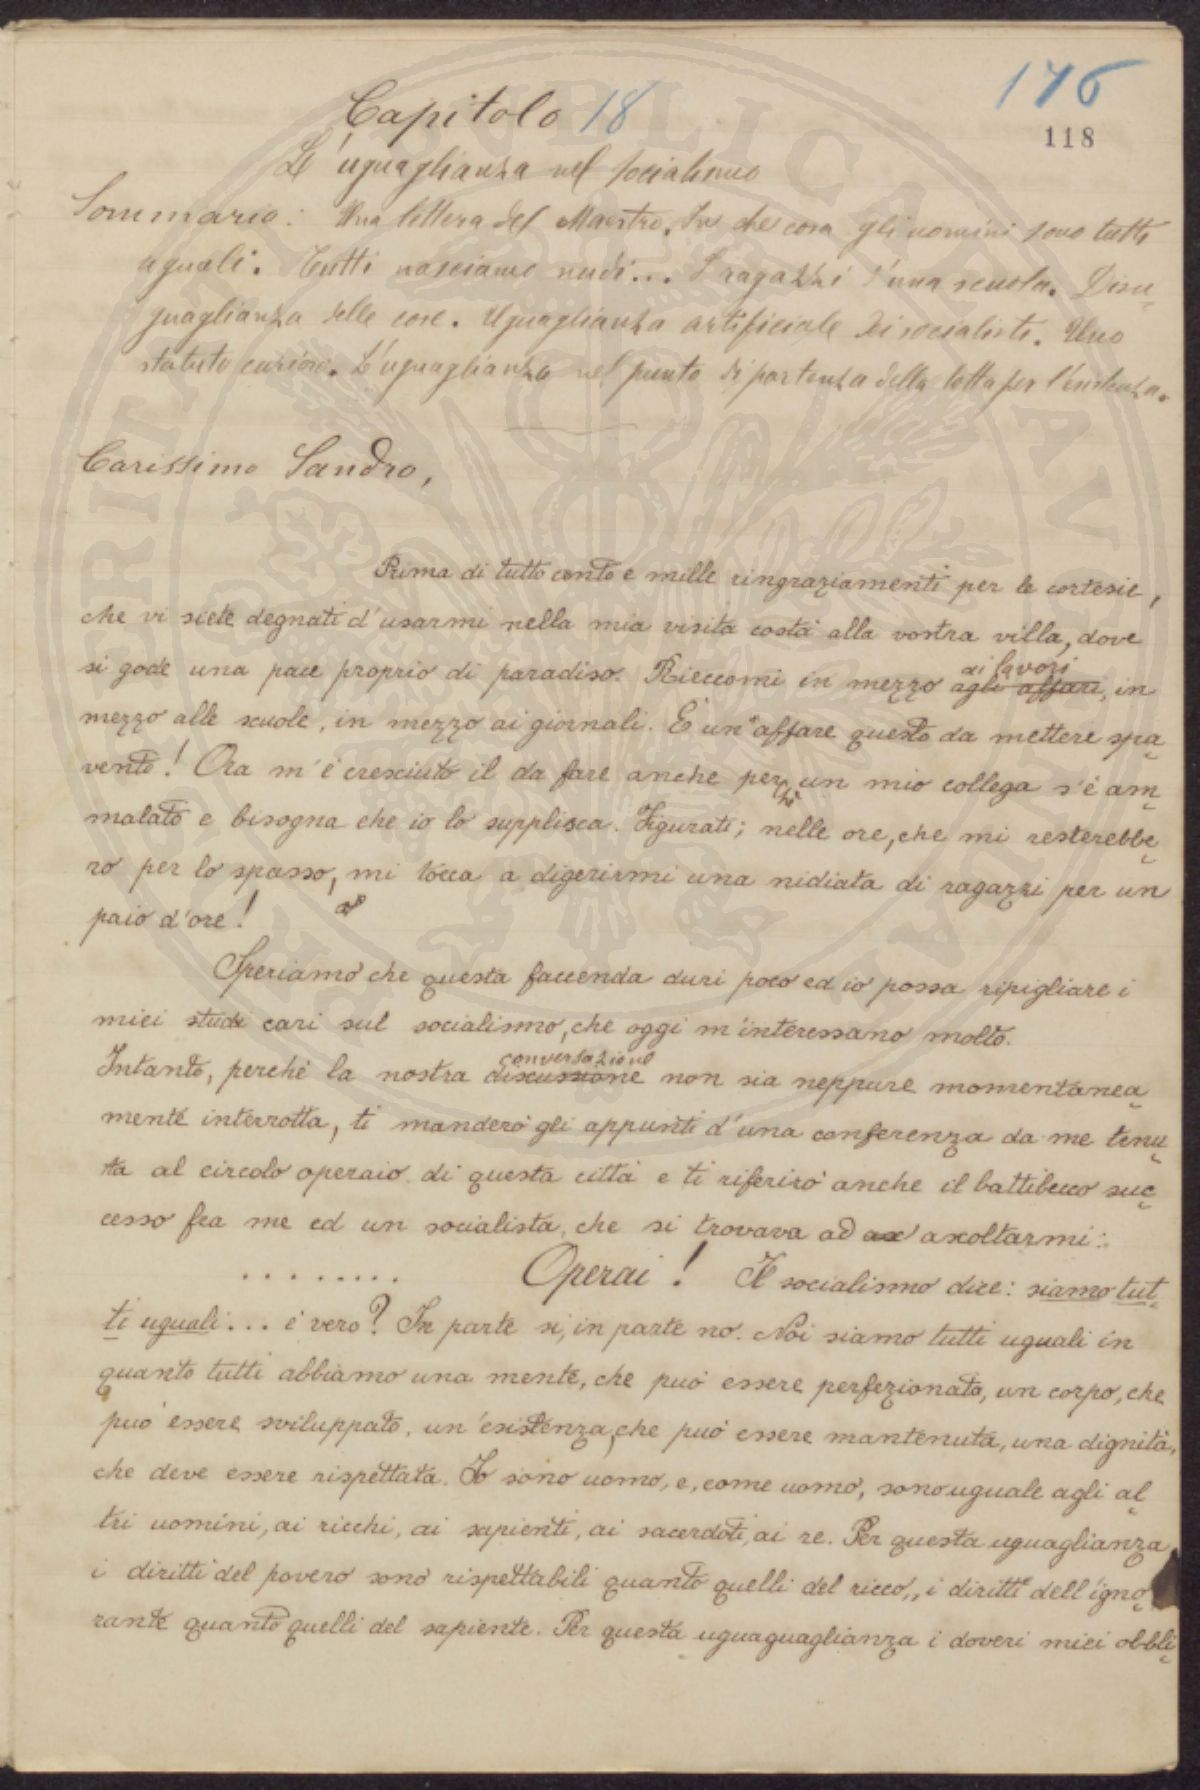 176
118
Capitolo 18
L'uguaglianza nel socialismo
Sommario: Una lettera del Maestro. In che cosa gli uomini sono tutti
uguali. Tutti nasciamo nudi... I ragazzi d'una scuola. Disu-
guaglianza delle cose. Uguaglianza artificiale dei socialisti. Uno
statuto curioso. L'uguaglianza nel punto di partenza della lotta per l'esistenza.
Carissimo Sandro,
Prima di tutto cento e mille ringraziamenti per le cortesie,
che vi siete degnati d'usarmi nella mia visita costà alla vostra villa, dove
si gode una pace proprio di paradiso. Rieccomi in mezzo agli affari, in
ai lavori
mezzo alle scuole, in mezzo ai giornali. È un'affare questo da mettere spa-
vento! Ora m'è cresciuto il da fare anche perchè un mio collega s'è am-
malato e bisogna che io lo supplisca. Figurati; nelle ore, che mi resterebbe-
ro per lo spasso, mi tocca a digerirmi una nidiata di ragazzi per un
paio d'ore!
Speriamo che questa faccenda duri poco ed io possa ripigliare i
miei studi cari sul socialismo, che oggi m'interessano molto.
Intanto, perchè la nostra discussione non sia neppure momentanea-
conversazione
mente interrotta, ti manderò gli appunti d'una conferenza da me tenu-
ta al circolo operaio di questa città e ti riferirò anche il battibecco suc-
cesso fra me ed un socialista, che si trovava ad as ascoltarmi:
........ Operai! Il socialismo dice: siamo tut-
ti uguali... è vero? In parte sì, in parte no. Noi siamo tutti uguali in
quanto tutti abbiamo una mente, che può essere perfezionata, un corpo, che
può essere sviluppato, un'esistenza, che può essere mantenuta, una dignità,
che deve essere rispettata. Io sono uomo, e, come uomo, sono uguale agli al-
tri uomini, ai ricchi, ai sapienti, ai sacerdoti, ai re. Per questa uguaglianza
i diritti del povero sono rispettabili quanto quelli del ricco,, i diritti dell'igno-
rante quanto quelli del sapiente. Per questa uguaguaglianza i doveri miei obbli-